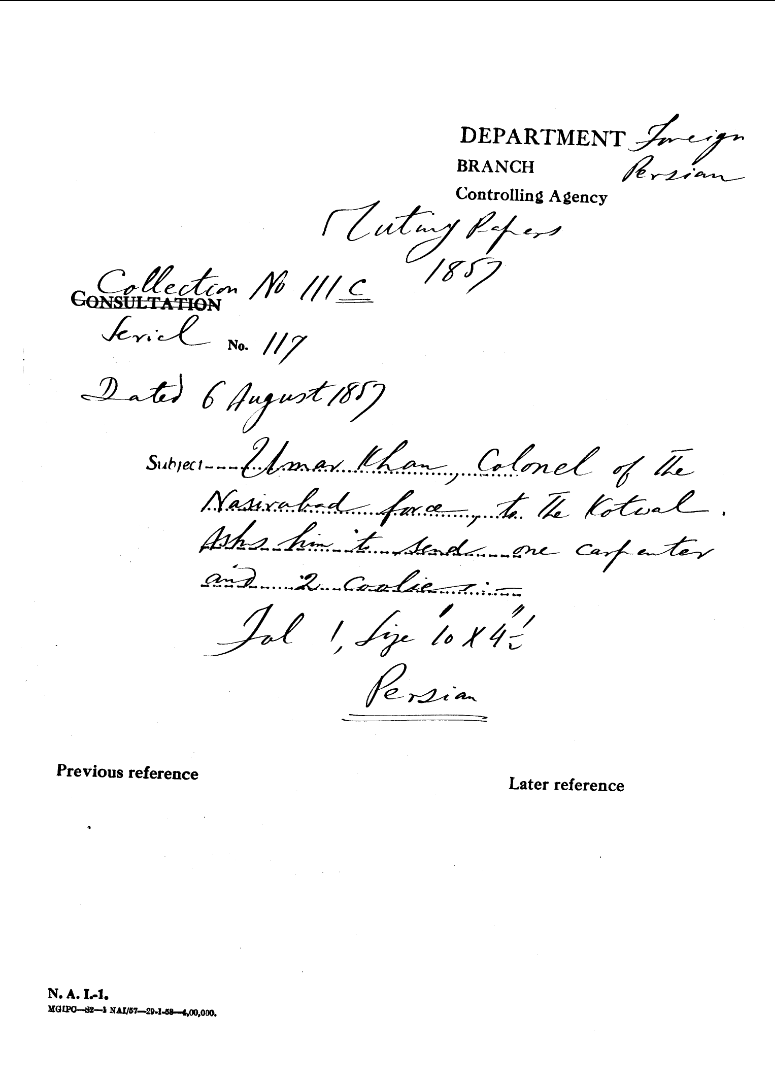 DEPARTMENT Foreign
BRANCH Persian
Controlling Agency
Mutiny Papers
1857
Collection No 111 C
CONSULTATION
Serial No. 117
Dated 6 August 1857
Subject Umar Khan, Colonel of the
Nasirabad force, to the Kotwal.
Asks him to send one carpenter
and 2 coolies:-
Fol 1, Size 10" X 4½"
Persian
Previous reference
Later reference
N. A. I.-1.
MGIPC—S2—5 NAI/57—29-1-58—4,00,000.